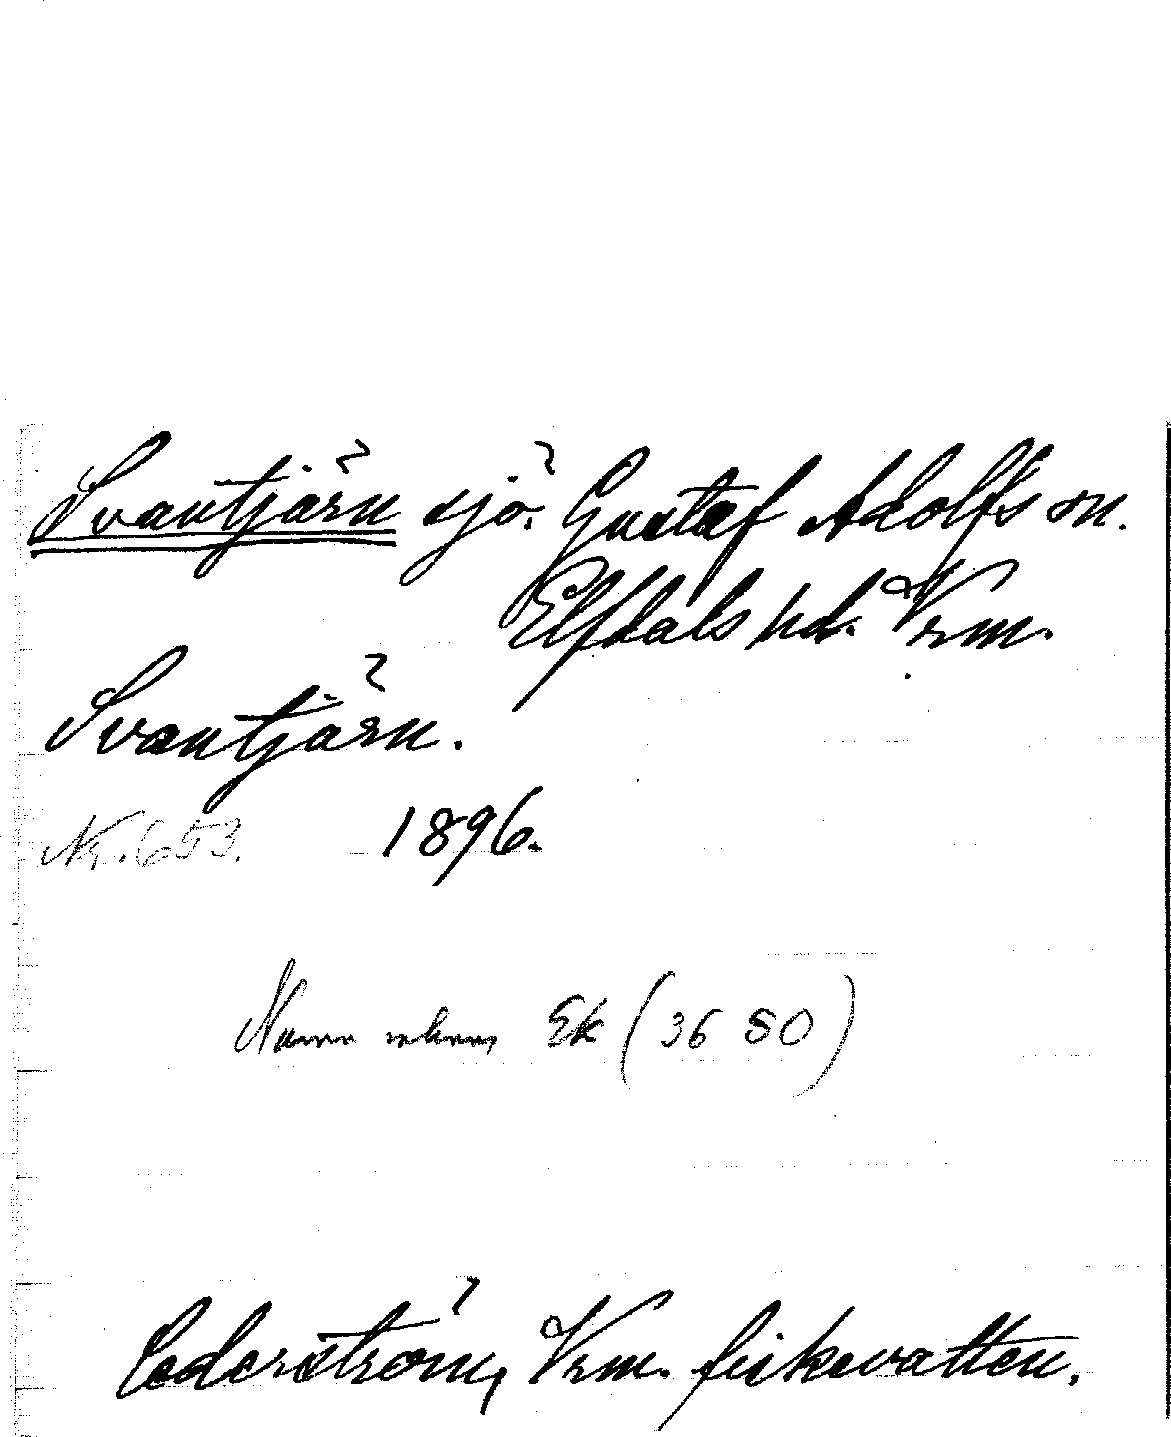 Svantjärn sjö. Gustaf Adolfs sn.
Elfdals hd. Vrm.
Svantjärn.
Nr. 653. 1896.
Namn Ek (36 80)
Cederström, Vrm. fiskevatten.